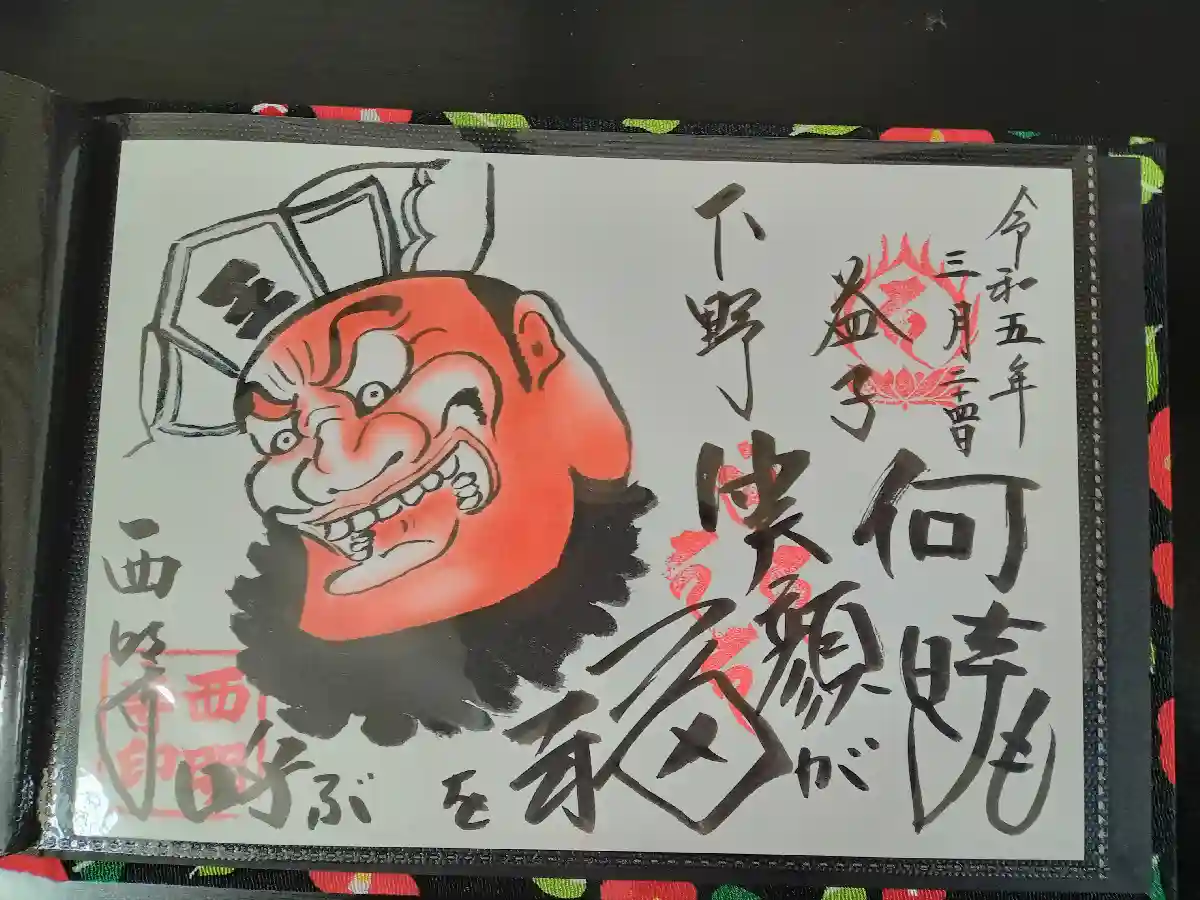 令和五年
三月二十四日
益子
下野
何時も
笑顔が
を
呼ぶ
西明寺
王
西明寺印